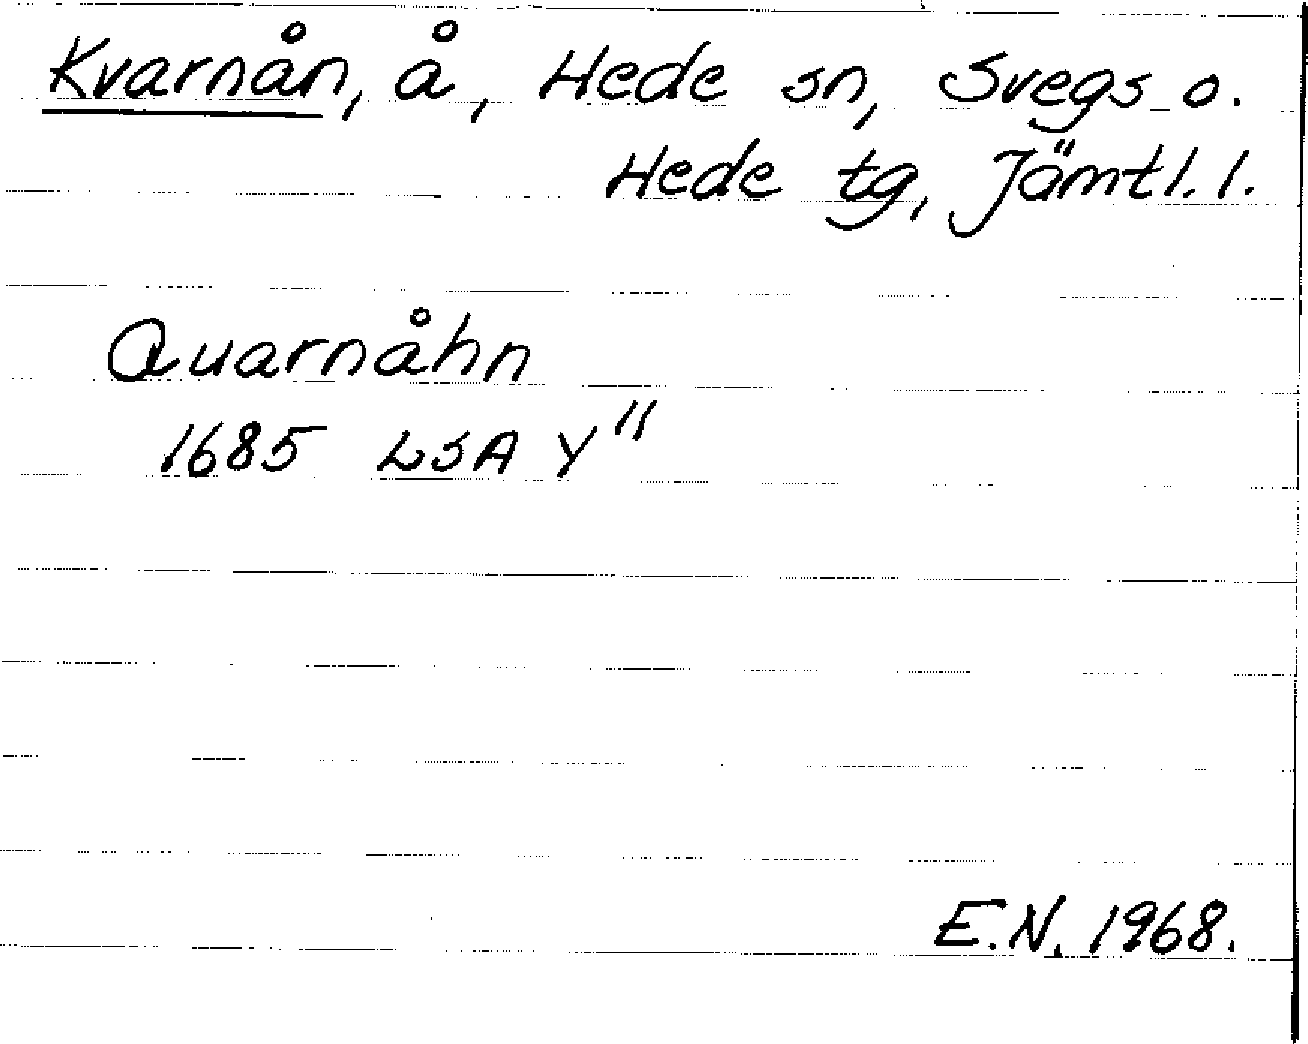 Kvarnån, å, Hede sn, Svegs o.
Hede tg, Jämtl. l.
Quarnåhn
1685 LSA Y"
E.N. 1968.